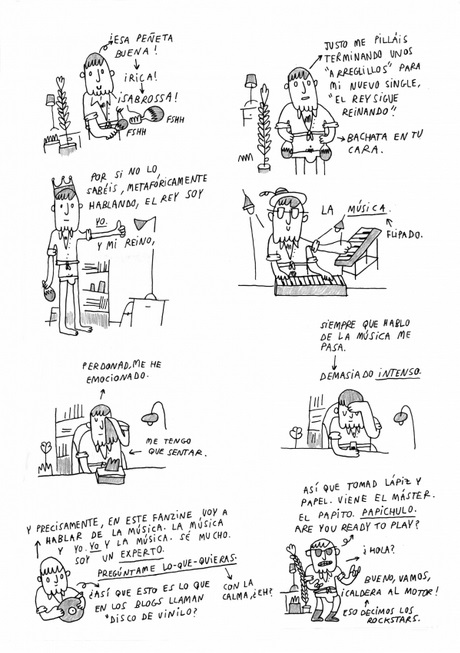 ¡ESA PEÑETA
BUENA!
¡RICA!
¡SABROSSA!
FSHH
FSHH
JUSTO ME PILLÁIS
TERMINANDO UNOS
"ARREGLILLOS" PARA
MI NUEVO SINGLE,
"EL REY SIGUE
REINANDO".
BACHATA EN TU
CARA.
POR SI NO LO
SABÉIS, METAFÓRICAMENTE
HABLANDO, EL REY SOY
YO.
Y MI REINO,
LA MÚSICA.
FLIPADO.
PERDONAD, ME HE
EMOCIONADO.
ME TENGO
QUE SENTAR.
SIEMPRE QUE HABLO
DE LA MÚSICA ME
PASA.
DEMASIADO INTENSO.
Y PRECISAMENTE, EN ESTE FANZINE VOY A
HABLAR DE LA MÚSICA. LA MÚSICA
Y YO. YO Y LA MÚSICA. SÉ MUCHO.
SOY UN EXPERTO.
PREGÚNTAME LO-QUE-QUIERAS.
CON LA
CALMA, ¿EH?
¿ASÍ QUE ESTO ES LO QUE
EN LOS BLOGS LLAMAN
"DISCO DE VINILO"?
ASÍ QUE TOMAD LÁPIZ Y
PAPEL. VIENE EL MÁSTER.
EL PAPITO. PAPICHULO.
ARE YOU READY TO PLAY?
¿HOLA?
BUENO, VAMOS,
¡CALDERA AL MOTOR!
ESO DECIMOS LOS
ROCKSTARS.